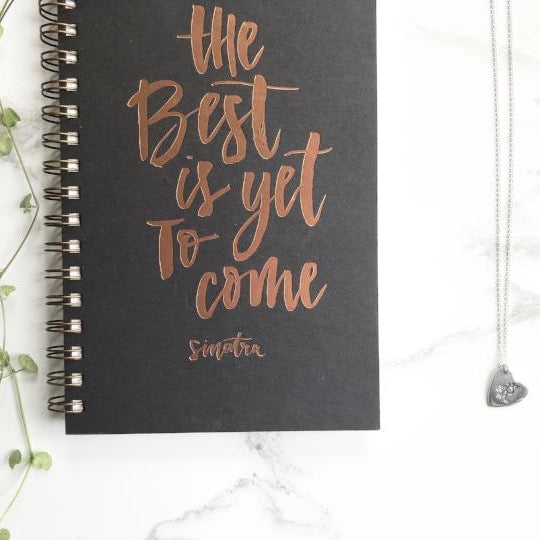 the
Best
is yet
To
come
Sinatra